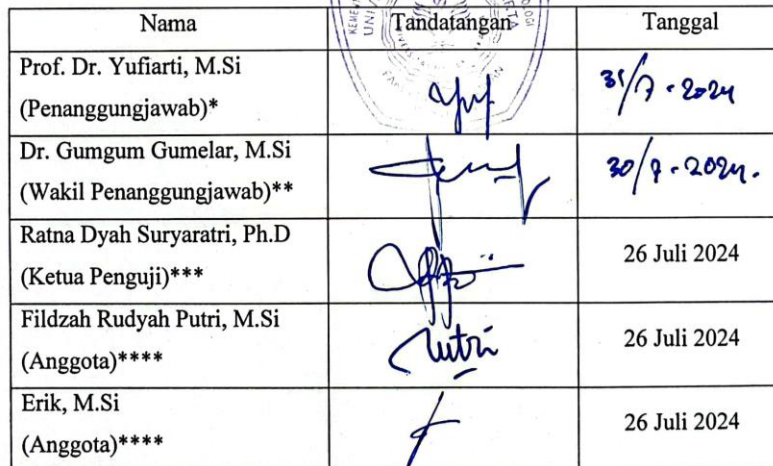 Nama Tandatangan Tanggal
Prof. Dr. Yufiarti, M.Si
(Penanggungjawab)* 31/7-2024
Dr. Gumgum Gumelar, M.Si
(Wakil Penanggungjawab)** 30/7-2024.
Ratna Dyah Suryaratri, Ph.D
(Ketua Penguji)*** 26 Juli 2024
Fildzah Rudyah Putri, M.Si
(Anggota)**** Putri 26 Juli 2024
Erik, M.Si
(Anggota)**** 26 Juli 2024